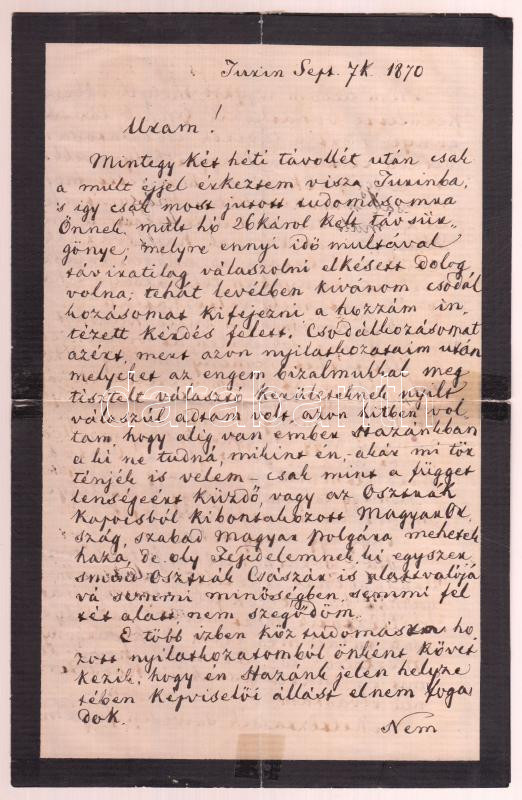 Turin Sept. 7k. 1870
Uram!
Mintegy két héti távollét után csak
a mult éjjel érkeztem vissza Turinba,
's igy csak most jutott tudomásomra
Önnek mult hó 26káról kelt távsür-
gönye, melyre ennyi idő multával
táviratilag válaszolni elkésett dolog
volna; tehát levélben kivánom csodál
kozásomat kifejezni a hozzám in-
tézett kérdés felett. Csodálkozásomat
azért, mert azon nyilatkozataim után
melyeket az engem bizalmukkal meg
tisztelt választó kerületeknek nyilt
válaszúl adtam volt, azon hitben vol-
tam, hogy alig van ember Hazánkban
a ki ne tudná, mikint én, akár mi tör
ténjék is velem – csak mint a függet
lenségeért küzdő, vagy az Osztrák
kapocsból kibontakozott Magyar Or
szág, szabad magyar polgára mehetek
haza, de oly Fejedelemnek, ki egyszer
smind Osztrák Császár is alattvalójá
vá semmi minőségben, semmi fel
tét alatt, nem szegődöm.
E több izben köz tudomásra ho
zott nyilatkozatomból önként követ
kezik, hogy én Hazánk jelen helyze
tében Képviselői állást el nem foga
dok.
Nem
darabanth